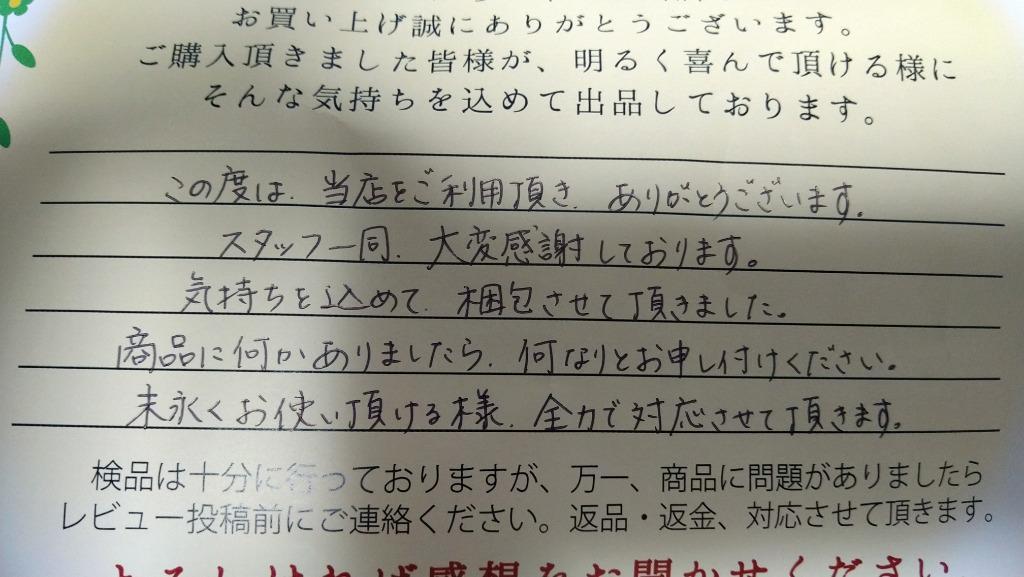 お買い上げ誠にありがとうございます。
ご購入頂きました皆様が、明るく喜んで頂ける様に
そんな気持ちを込めて出品しております。
この度は、当店をご利用頂き、ありがとうございます。
スタッフ一同、大変感謝しております。
気持ちを込めて、梱包させて頂きました。
商品に何かありましたら、何なりとお申し付けください。
末永くお使い頂ける様、全力で対応させて頂きます。
検品は十分に行っておりますが、万一、商品に問題がありましたら
レビュー投稿前にご連絡ください。返品・返金、対応させて頂きます。
よろしければ感想をお聞かせください